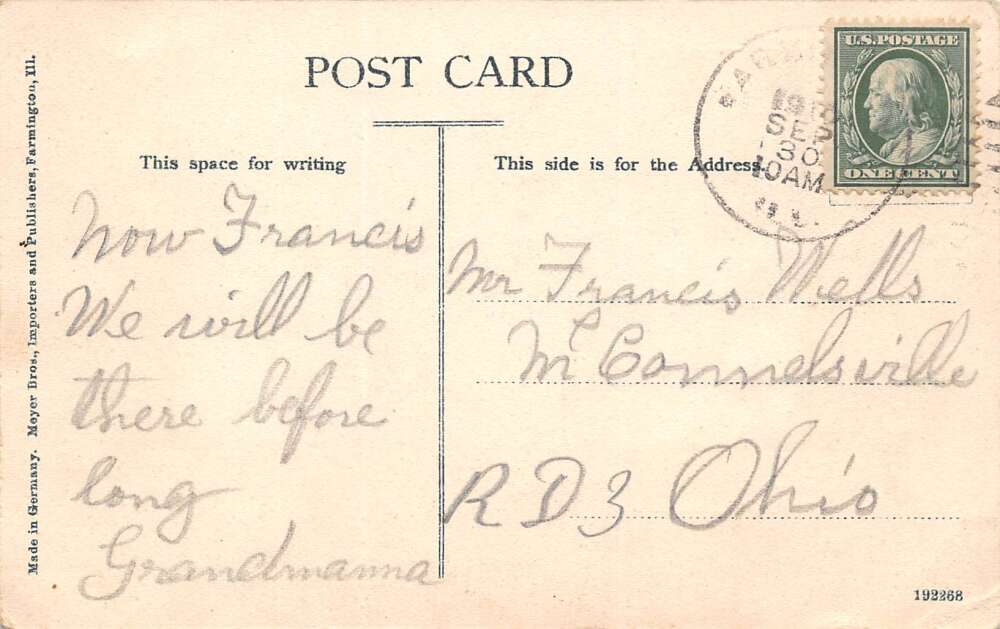 POST CARD
This space for writing
This side is for the Address.
Made in Germany. Meyer Bros., Importers and Publishers, Farmington, Ill.
SEP
30
10AM
U.S. POSTAGE
ONE CENT
Now Francis
We will be
there before
long
Grandmamma
Mr Francis Wells
McConnelsville
R D 3 Ohio
192268